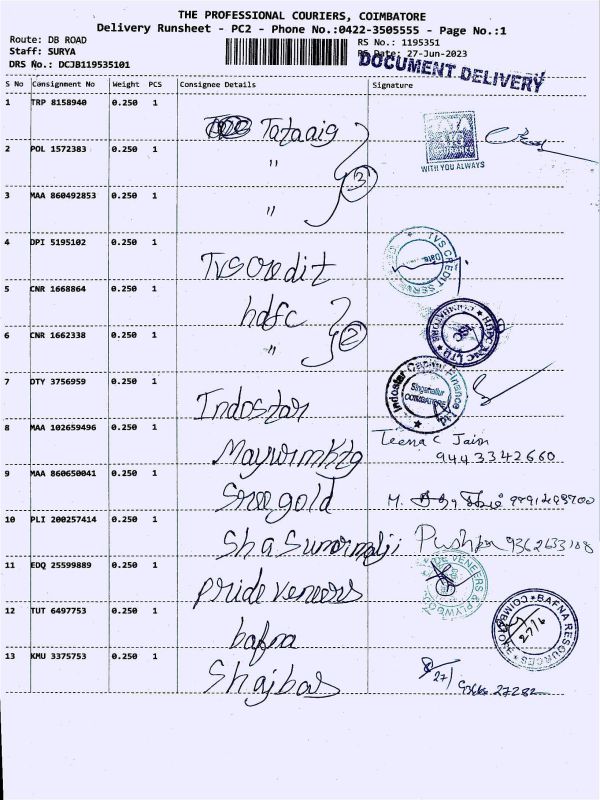 THE PROFESSIONAL COURIERS, COIMBATORE
Delivery Runsheet - PC2 - Phone No.:0422-3505555 - Page No.:1
Route: DB ROAD
RS No.: 1195351
Staff: SURYA
RS Date: 27-Jun-2023
DRS No.: DCJB119535101
DOCUMENT DELIVERY
S No Consignment No Weight PCS Consignee Details Signature
1 TRP 8158940 0.250 1 Tataaig
2 POL 1572383 0.250 1 "
WITH YOU ALWAYS
3 MAA 860492853 0.250 1 "
3
4 DPI 5195102 0.250 1 Tvs Credit
TVS CREDIT
Date:
5 CNR 1668864 0.250 1 hdfc
6 CNR 1662338 0.250 1 "
2
7 DTY 3756959 0.250 1 Indostar
Indostar Capital Finance
Singanallur
COIMBATORE
8 MAA 102659496 0.250 1 Teena C Jain
9443342660
9 MAA 860650041 0.250 1 Sree gold
10 PLI 200257414 0.250 1
11 EDQ 25599889 0.250 1 Pride veneers
VENEERS & PLYWOOD
12 TUT 6497753 0.250 1 bafna
BAFNA RESOURCES
27/6
13 KMU 3375753 0.250 1
27/